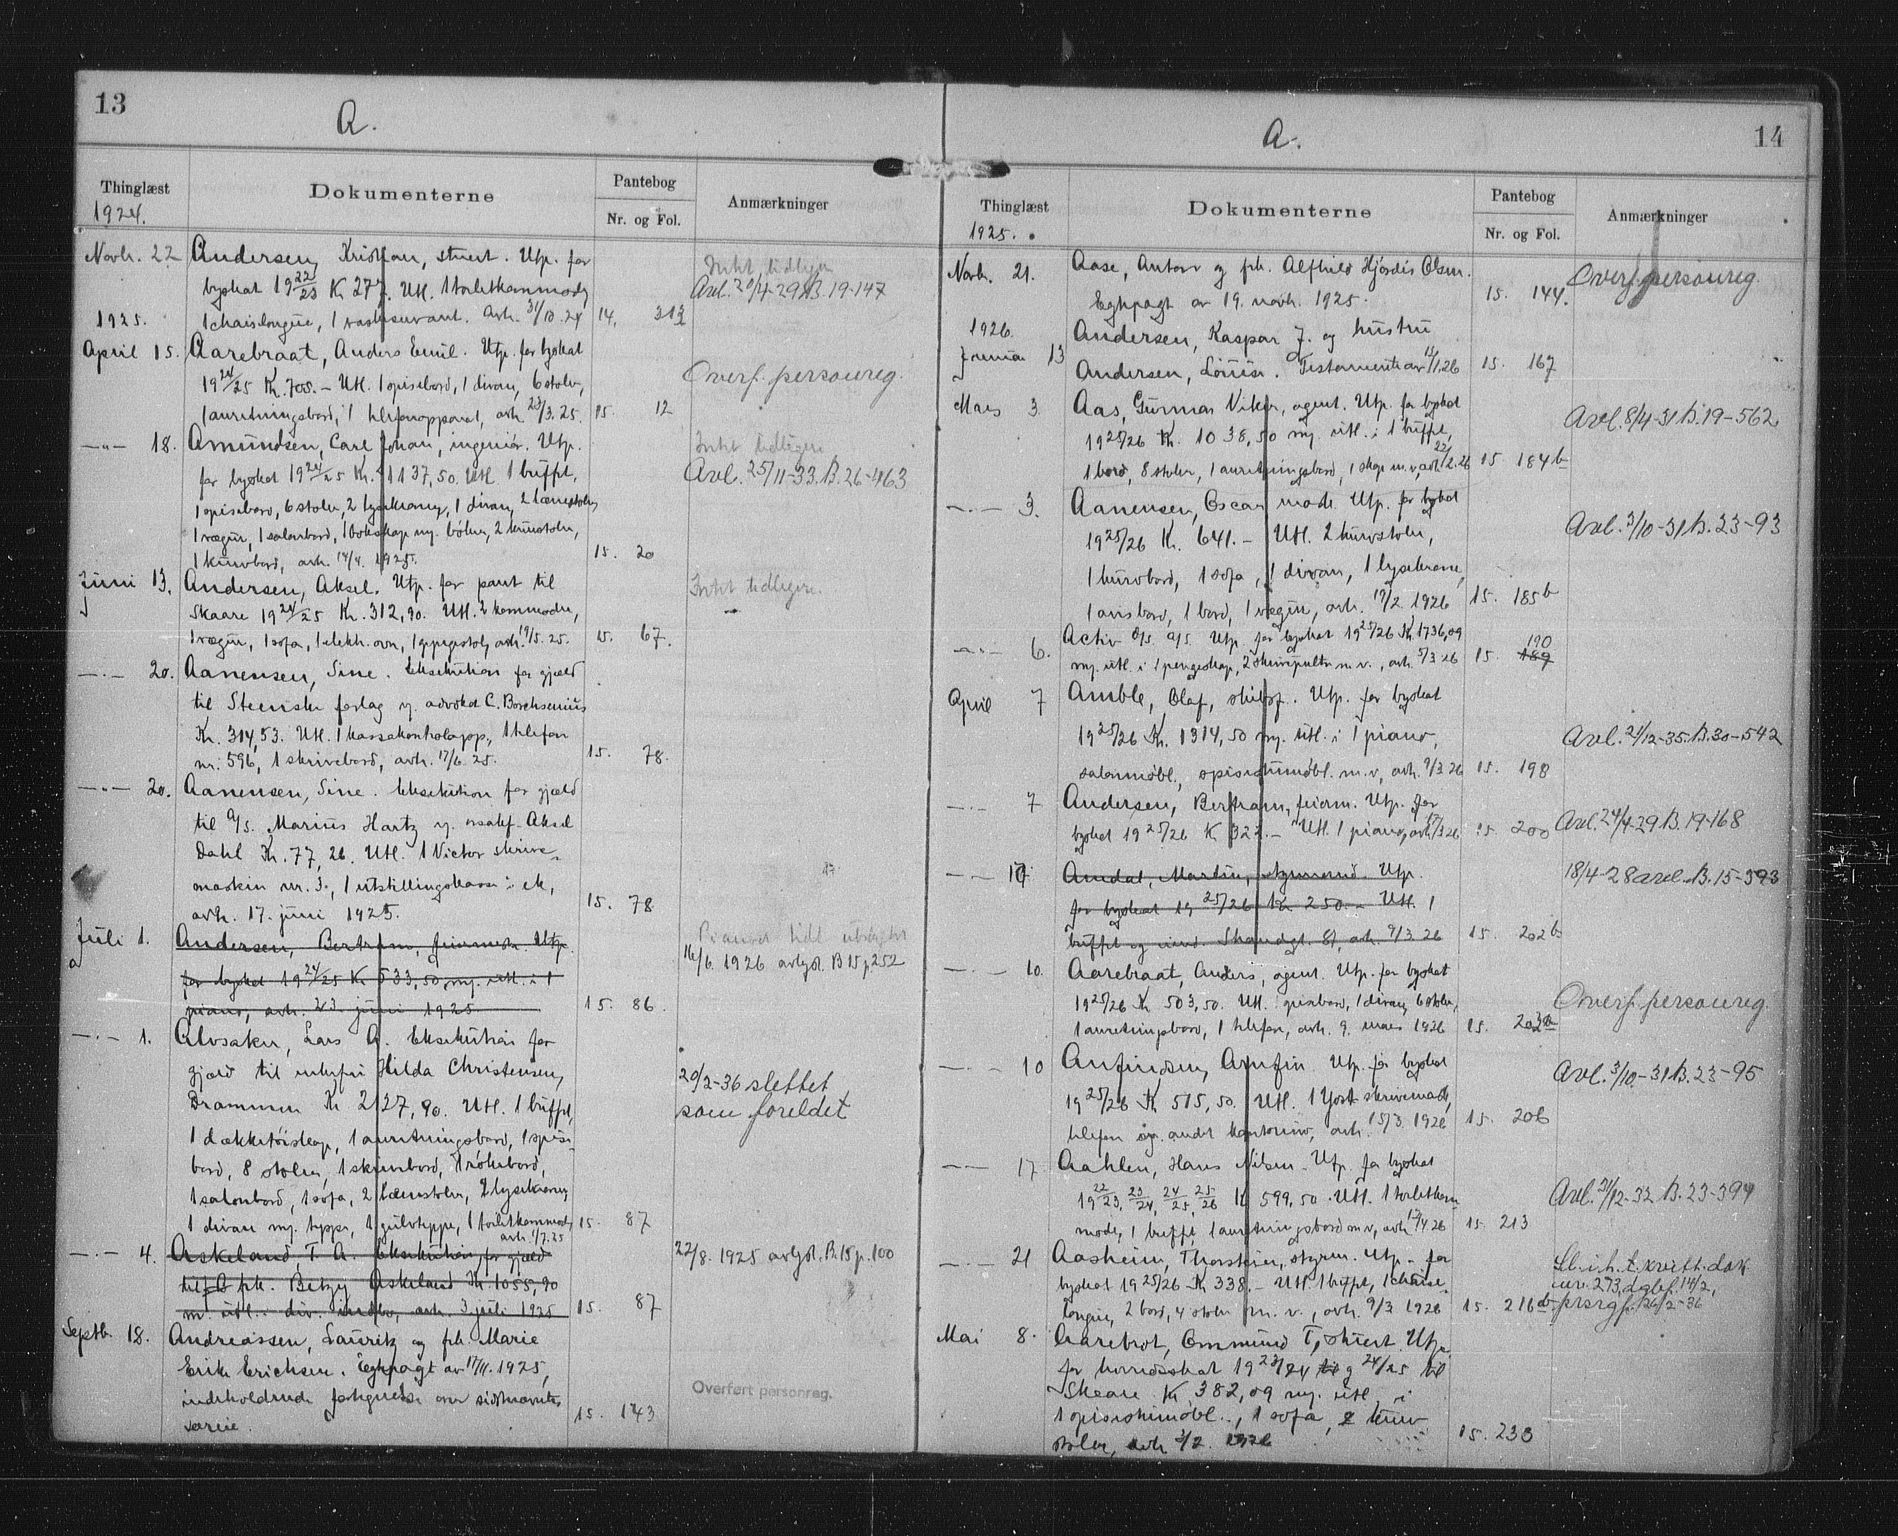 13
A.
Thinglæst
Dokumenterne
Pantebog
Nr. og Fol.
Anmærkninger
1924.
Novbr. 22 Andersen, Kristian, stuert. Utp. for
byskat 19 22/23 Kr 277. Utl. 1 toiletkommode,
1 chaiselongue, 1 vaskeservant. avh. 31/10.24 14. 313
Intet tidligere
Avl. 20/4-29 B.19-147
1925.
April 15. Aarebraat, Anders Emil. Utp. for byskat
19 24/25 Kr. 708.- Utl. 1 spisebord, 1 divan, 6 stoler,
1 anretningsbord, 1 telefonapparat, avh. 23/3.25. 15. 12
Overf. personreg.
-"- 18. Amundsen, Carl Johan, ingeniør. Utp.
for byskat 19 24/25 Kr. 1137,50. Utl. 1 buffet,
1 spisebord, 6 stoler, 2 lysekroner, 1 divan, 2 lænestoler,
1 vægur, 1 salonbord, 1 bokskap m. bøker, 2 kurvstoler,
1 kurvbord, avh. 14/4. 1925. 15. 20
Intet tidligere
Avl. 25/11-33. B. 26-463
Juni 13. Andersen, Aksel. Utp. for pant til
Skaare 19 24/25 Kr. 312,90. Utl. 2 kommoder,
1 vægur, 1 sofa, 1 elektr. ovn, 1 gyngestol, avh. 19/5. 25. 15. 67.
Intet tidligere.
-"- 20. Aanensen, Sine. Eksekution for gjæld
til Steenske forlag v. advokat C. Borchsenius
Kr. 314,53. Utl. 1 kassakontrolapp., 1 telefon
nr. 596, 1 skrivebord, avh. 17/6. 25. 15. 78.
-"- 20. Aanensen, Sine. Eksekution for gjæld
til A/S. Marius Hartz v. Aksel
Dahl Kr. 77,26. Utl. 1 Victor skrive-
maskin nr. 3, 1 utstillingskasse i ek,
avh. 17. juni 1925. 15. 78
Juli 1. Andersen, Bertram, feierm. Utp.
for byskat 19 24/25 Kr 533,50 m. utl. i 1
piano, avh. 23. juni 1925 15. 86.
16/6. 1926 avlyst. B 15 p 252
-"- 1. Alvsaker, Lars A. Eksekution for
gjæld til Hilda Christensen,
Drammen Kr 227,90. Utl. 1 buffet,
1 dækketøiskap, 1 anretningsbord, 1 spise-
bord, 8 stoler, 1 skrivbord, 1 røkebord,
1 salonbord, 1 sofa, 2 lænestoler, 2 lysekroner,
1 divan m. teppe, 1 gulvteppe, 1 toiletkommode,
avh. 1/7.25 15. 87
20/2-36 slettet
som foreldet
-"- 4. Askeland, T. A. Eksekution for gjæld
til frk. Betzy Askeland Kr. 1055,90
m. utl. i div. indbo, avh. 3 juli 1925 15. 87
22/8. 1925 avlyst. B. 15 p. 100
Septb. 18. Andreassen, Lauritz og frk. Marie
Erik Erichsen. Egtepagt av 17/11. 1925,
indeholdende særeie. 15. 143
Overført personreg.
14
A.
Thinglæst
Dokumenterne
Pantebog
Nr. og Fol.
Anmærkninger
1925.
Novbr. 21. Aase, Anton og frk. Alfhild Hjørdis Olsen.
Egtepagt av 19. novbr. 1925. 15. 144.
Overf. personreg.
1926.
Januar 13 Andersen, Kaspar J. og hustru
Andersen, Lovise. Testamente av 12/1.26 15. 167
Mars 3. Aas, Gunnar Viktor, agent. Utp. for byskat
19 25/26 Kr. 1038,50 m. utl. i 1 buffet,
1 bord, 8 stoler, 1 anretningsbord, 1 skap m.v, avh. 22/2.26 15 184b
Avl. 8/4-31 B. 19-562
-"- 3. Aanensen, Oscar, Utp. for byskat
19 25/26 Kr. 641.- Utl. 2 kurvstoler,
1 kurvbord, 1 sofa, 1 divan, 1 lysekrone,
1 ansbord, 1 bord, 1 vægur, avh. 19/2. 1926 15. 185b
Avl. 3/10-31 B. 23-93
-"- 6. Activ A/S. Utp. for byskat 19 25/26 Kr. 1736,09
m. utl. i 1 pengeskap, 2 skrivepulter m.v., avh. 5/3 26 15. 189 190
April 7 Amble, Olaf, skibsf. Utp. for byskat
19 25/26 Kr. 1314,50 m. utl. i 1 piano,
salonmøbl., spisestuemøbl. m.v, avh. 9/3.26 15. 198
Avl. 21/12-35. B. 30-542
-"- 7 Andersen, Bertram, feierm. Utp. for
byskat 19 25/26 Kr 322.- Utl. 1 piano, avh. 17/3 26 15. 200
Avl. 24/4-29. B. 19-168
-"- 10 Amdal, Martin, Utp.
for byskat 19 25/26 Kr. 250.- Utl. 1
buffet og Strandgt. 81, avh. 9/3. 26 15. 202b
18/4-28 avl. B. 15-593
-"- 10. Aarebraat, Anders, agent. Utp. for byskat
19 25/26 Kr 503,50. Utl. spisebord, 1 divan, 6 stoler,
1 anretningsbord, 1 telefon, avh. 9. mars 1926 15. 203b
Overf. personreg.
-"- 10 Anfindsen, Arnfin. Utp. for byskat
19 25/26 Kr 515,50. Utl. 1 Yost skrivemask.,
telefon og andet kontorinv, avh. 15/3. 1926 15. 206
Avl. 3/10-31 B. 23-95
-"- 17. Aahlen, Hans Nilsen. Utp. for byskat
19 22/23, 23/24, 24/25, 25/26 Kr 599,50. Utl. 1 toiletkom-
mode, 1 buffet, 1 anretningsbord m.v, avh. 12/4 26 15. 213
Avl. 21/12-32 B. 23-394
-"- 21 Aasheim, Thorstein, styrm. Utp. for
byskat 19 25/26 Kr 338.- Utl. 1 buffet, 1 chaise-
longue, 2 bord, 4 stoler m.v., avh. 9/3 1926 15. 216b
Sl. i h. t. kreft. dok
nr. 273, dglf. 14/2,
prsrg f. 26/2-36
Mai 8. Aarebrot, Ommund T, stuert. Utp.
for herredsskat 19 23/24 og 24/25 til
Skeare Kr 382,09 m. utl. i
1 spisestuemøbl., 1 sofa, 2 kurv-
stoler, avh 3/2. 1926 15. 233